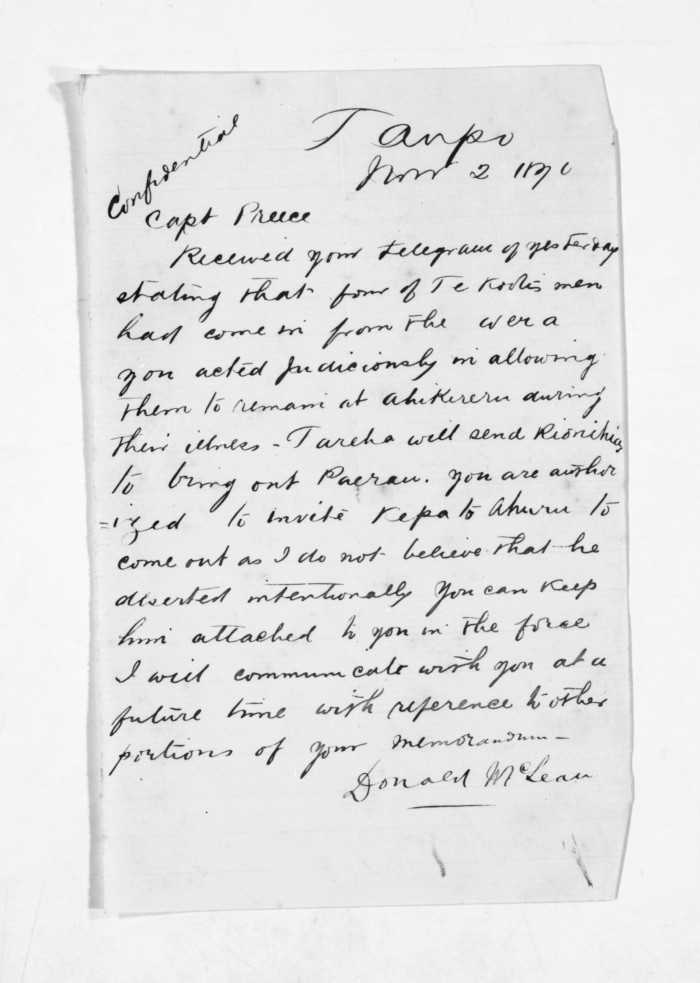 Confidential
Taupo
Nov 2 1870
Capt Preece
Received your telegram of yesterday
stating that four of Te Kootis men
had come in from the wera
you acted Judiciously in allowing
them to remain at Ahikereru during
their illness - Tareha will send
to bring out Paerau. you are author
=ized to invite Kepa te Ahuru to
come out as I do not believe that he
diserted intentionally You can keep
him attached to you in the force
I will communicate with you at a
future time with reference to other
portions of your memorandum -
Donald McLean